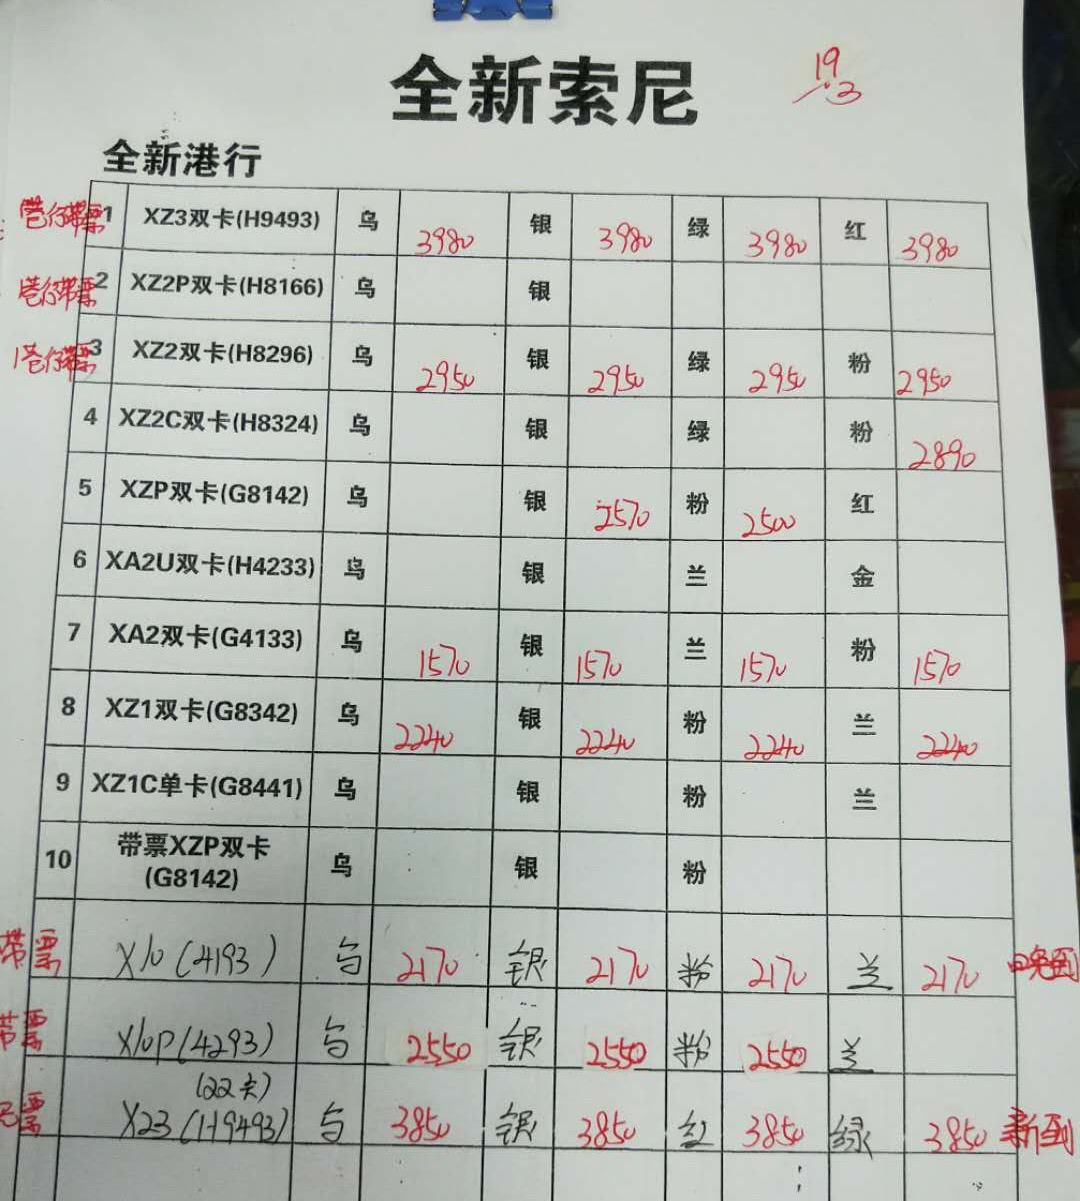 全新索尼
19.3
全新港行
港行带票 1 XZ3双卡(H9493) 乌 3980 银 3980 绿 3980 红 3980
港行带票 2 XZ2P双卡(H8166) 乌 银
港行带票 3 XZ2双卡(H8296) 乌 2950 银 2950 绿 2950 粉 2950
4 XZ2C双卡(H8324) 乌 银 绿 粉 2890
5 XZP双卡(G8142) 乌 银 2570 粉 2500 红
6 XA2U双卡(H4233) 乌 银 兰 金
7 XA2双卡(G4133) 乌 1570 银 1570 兰 1570 粉 1570
8 XZ1双卡(G8342) 乌 2240 银 2240 粉 2240 兰 2240
9 XZ1C单卡(G8441) 乌 银 粉 兰
10 带票XZP双卡
(G8142) 乌 银 粉
带票 X10(4193) 乌 2170 银 2170 粉 2170 兰 2170
带票 X10P(4293) 乌 2550 银 2550 粉 2550 兰
票 XZ3(H9493) 乌 3850 银 3850 红 3850 绿 3850 新到